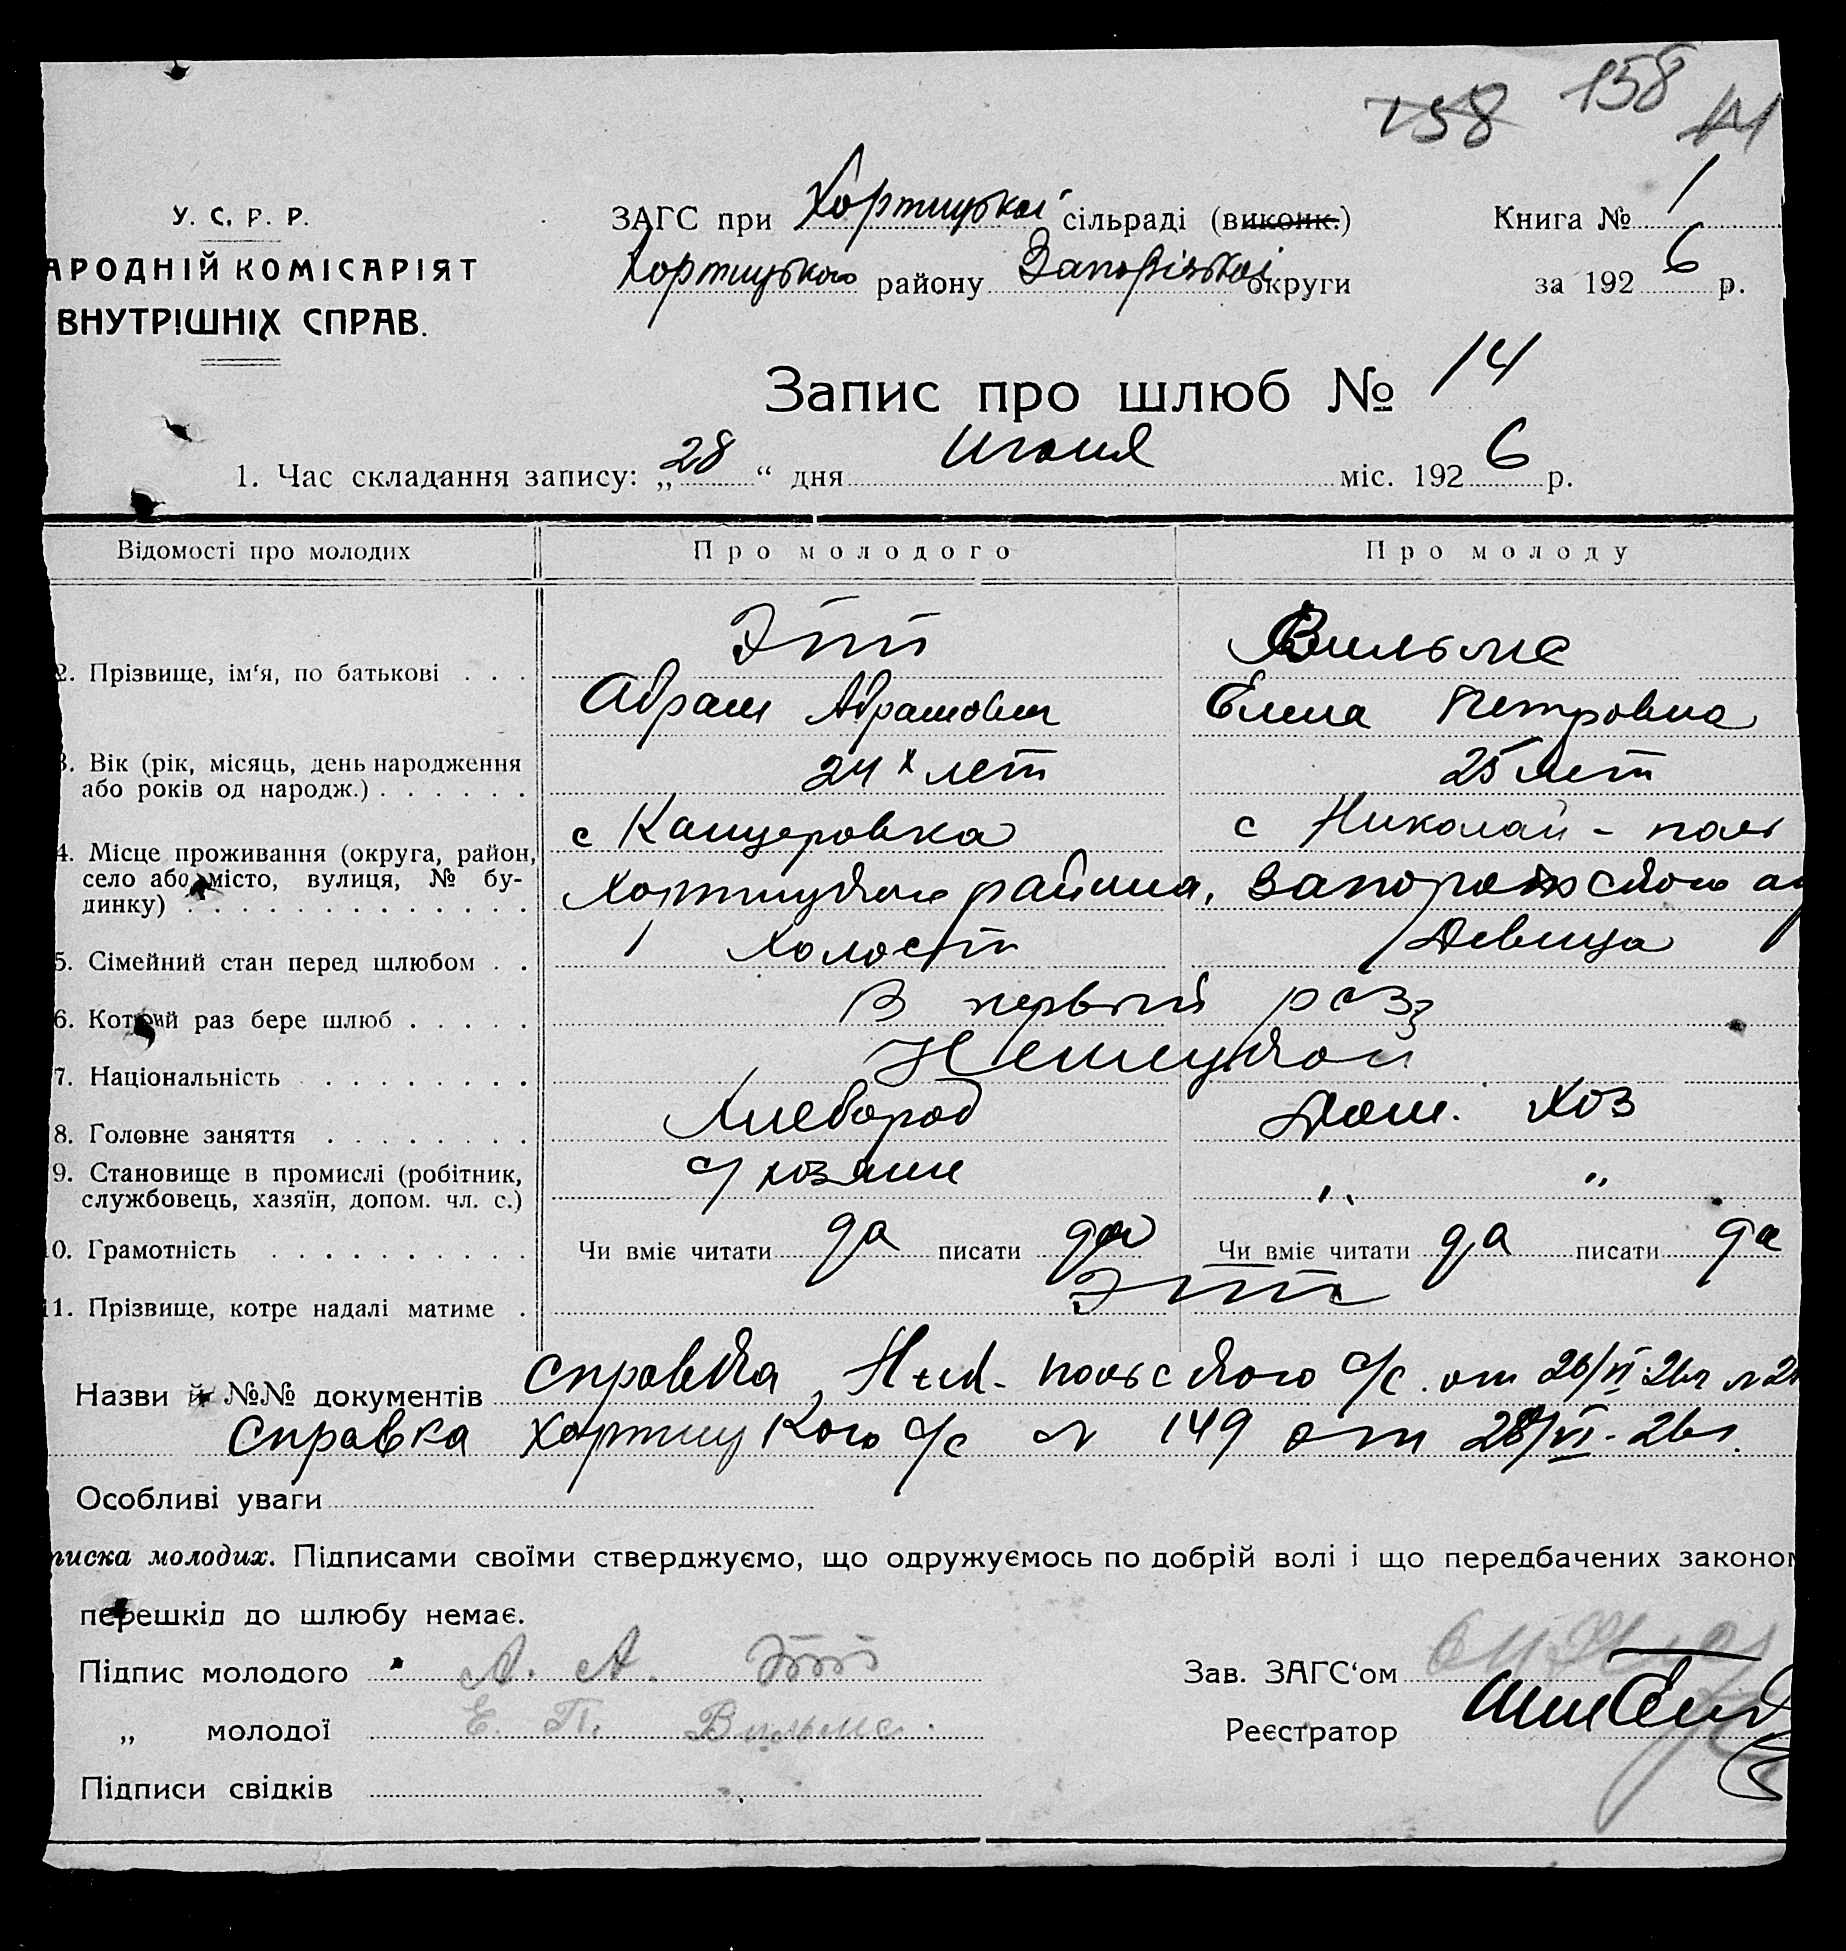 158 158 141
У. С. Р. Р.
АРОДНІЙ КОМІСАРІЯТ
ВНУТРІШНІХ СПРАВ.
ЗАГС при Хортицької сільраді (виконк.)
Хортицького району Запорізької округи
Книга № 1
за 192 6 р.
Запис про шлюб № 14
1. Час складання запису: „ 28 “ дня Июня міс. 192 6 р.
Відомості про молодих
Про молодого
Про молоду
2. Прізвище, ім'я, по батькові . . .
Этт
Вильмс
Абрам Абрамович
Елена Петровна
3. Вік (рік, місяць, день народження
або років од народж.) . . . . . .
24х лет
25 лет
4. Місце проживання (округа, район,
село або місто, вулиця, № бу-
динку) . . . . . . . . . . . . . .
с Канцеровка
с Николай - поль
Хортицкого района, Запорожского
5. Сімейний стан перед шлюбом . .
Холост
Девица
6. Котрий раз бере шлюб . . . . .
В первый раз
7. Національність . . . . . . . .
Немецкой
8. Головне заняття . . . . . . . .
Хлебороб
Дом. хоз
9. Становище в промислі (робітник,
службовець, хазяїн, допом. чл. с.)
с/хозяин
" "
10. Грамотність . . . . . . . . . .
Чи вміє читати да писати да
Чи вміє читати да писати да
11. Прізвище, котре надалі матиме .
Этт
Назви й №№ документів справка, Ник-польского с/с. от 26/VI-26г №
Справка Хортицкого с/с № 149 от 28/VI-26г.
Особливі уваги
писка молодих. Підписами своїми стверджуємо, що одружуємось по добрій волі і що передбачених законом
перешкід до шлюбу немає.
Підпис молодого А. А. Этт
„ молодої Е. П. Вильмс.
Підписи свідків
Зав. ЗАГС'ом
Реєстратор